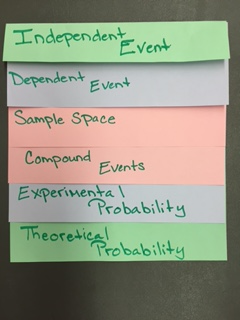 Independent
Event
Dependent
Event
Sample Space
Compound
Events
Experimental
Probability
Theoretical
Probability